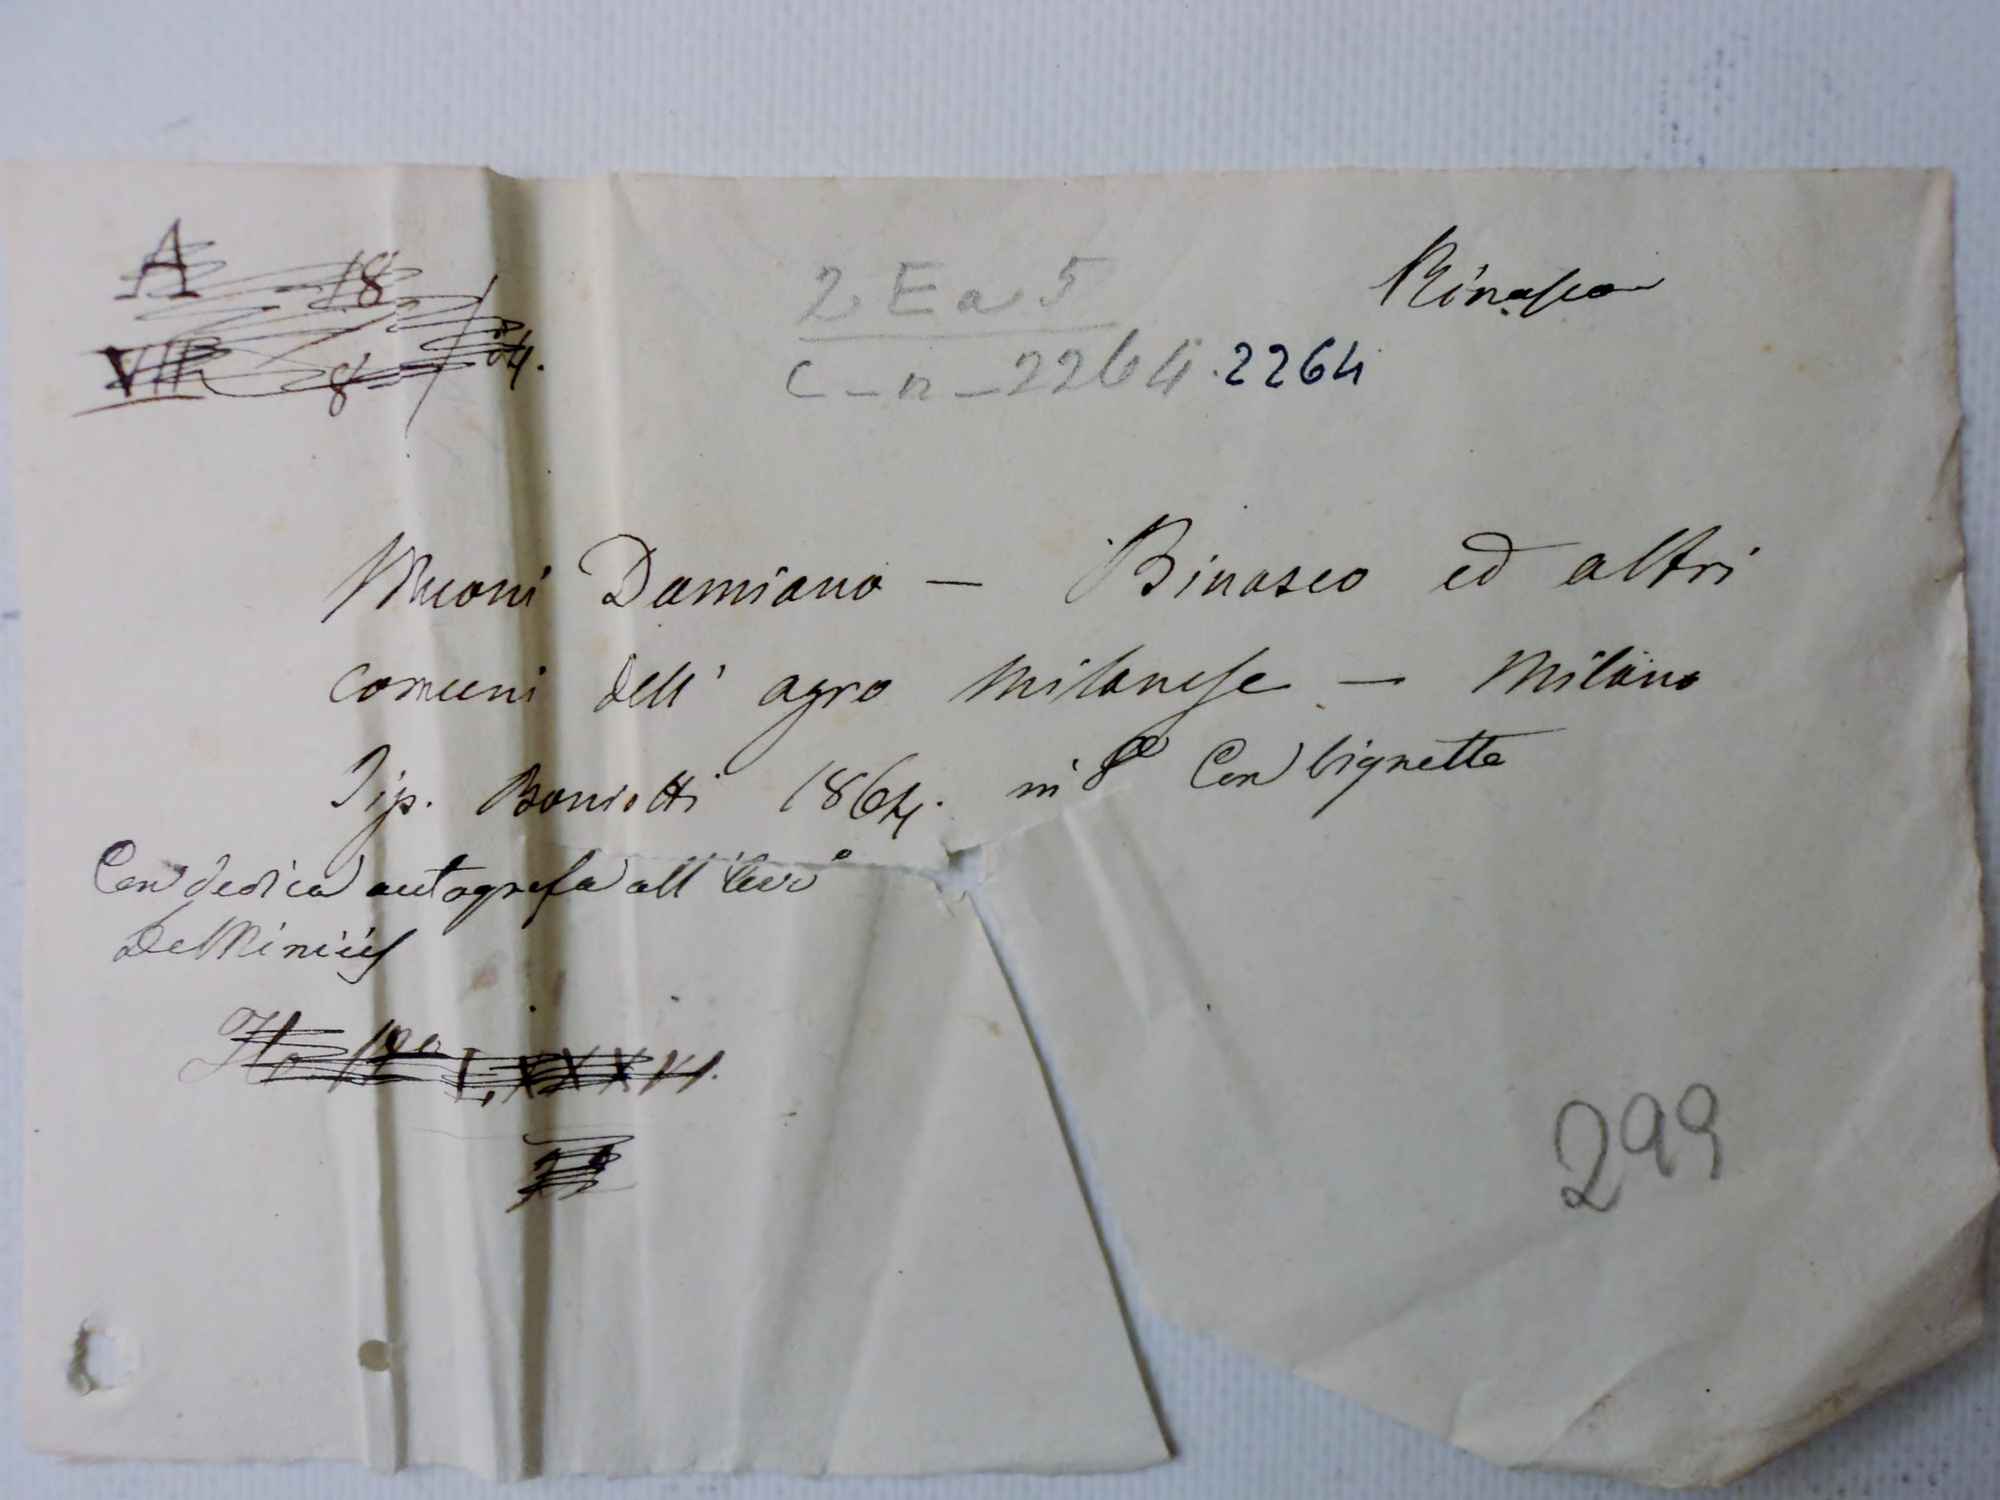 A 18
VIII 8 64.
Binasco
2 E a 5
C - n - 2264. 2264
Muoni Damiano — Binasco ed altri
comuni dell' agro milanese — Milano
Tip. Boniotti 1864. in 8° Con vignette
Con dedica autografa all'
De Minicis
LXXXVI.
299